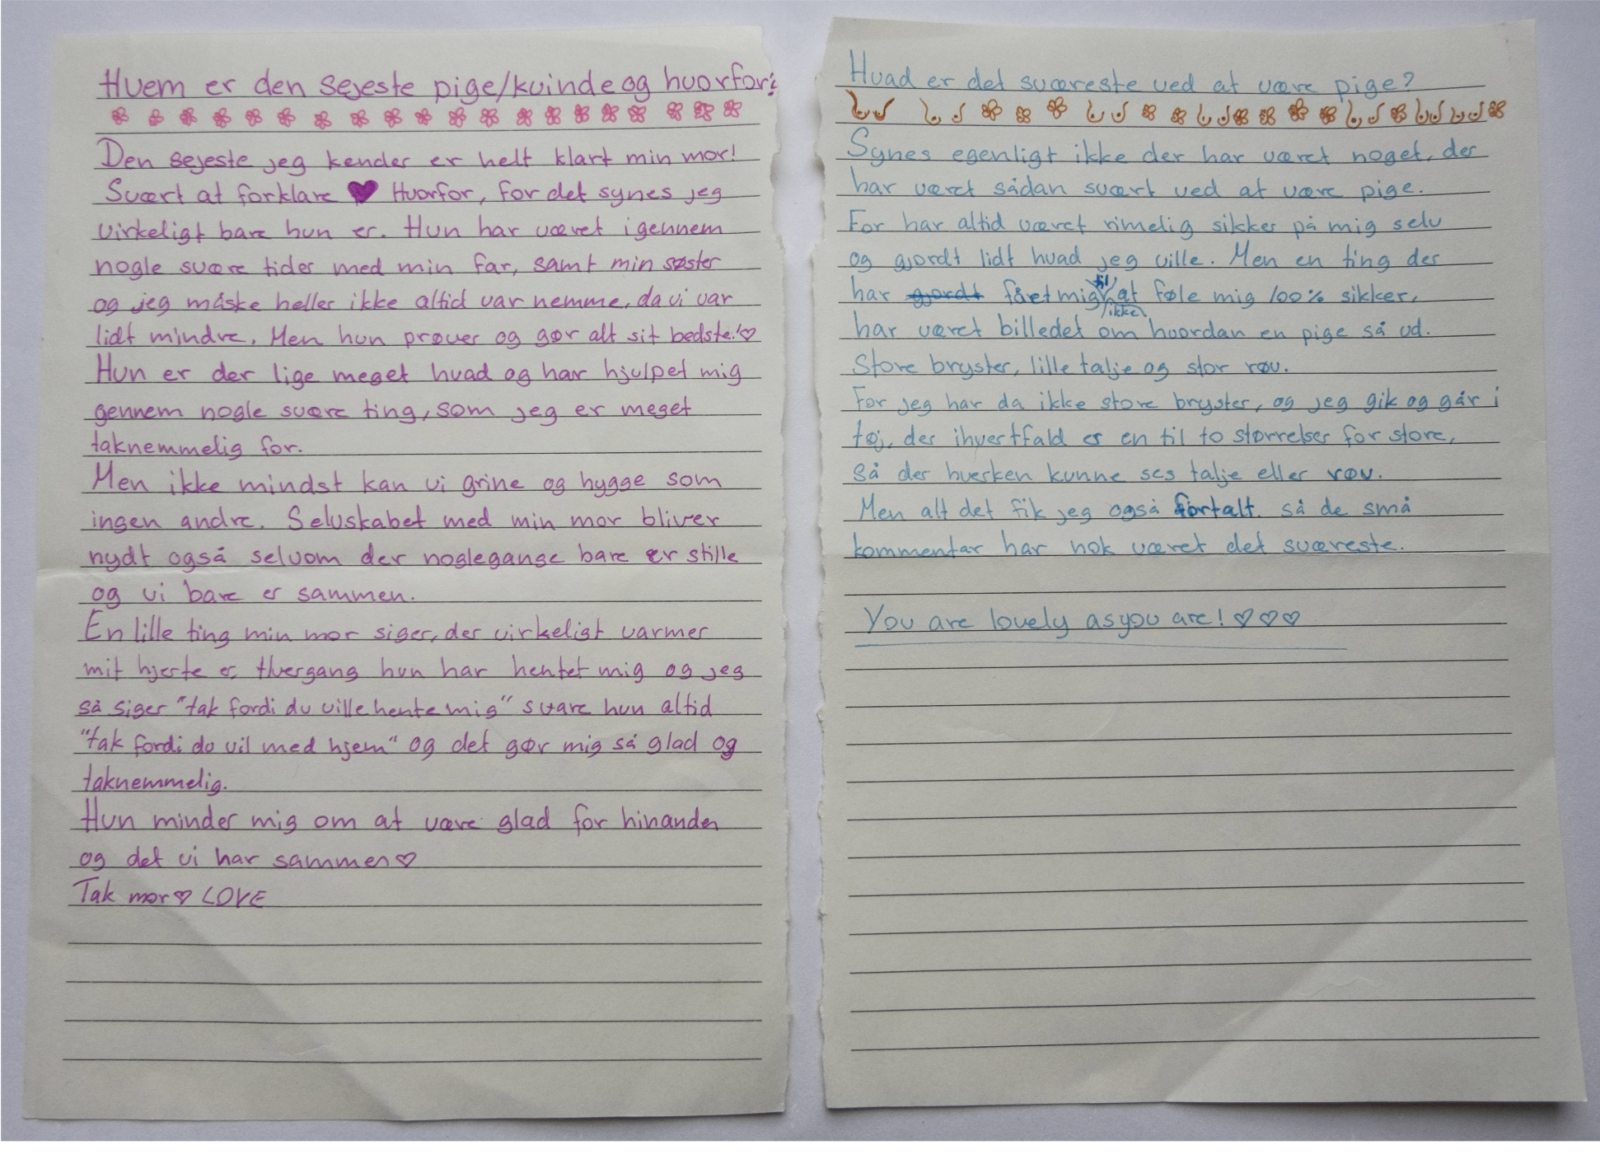 Hvem er den sejeste pige/kvinde og hvorfor?
Den sejeste jeg kender er helt klart min mor!
Svært at forklare ♥ Hvorfor, for det synes jeg
virkeligt bare hun er. Hun har været igennem
nogle svære tider med min far, samt min søster
og jeg måske heller ikke altid var nemme, da vi var
lidt mindre. Men hun prøver og gør alt sit bedste!♡
Hun er der lige meget hvad og har hjulpet mig
gennem nogle svære ting, som jeg er meget
taknemmelig for.
Men ikke mindst kan vi grine og hygge som
ingen andre. Selvskabet med min mor bliver
nydt også selvom der noglegange bare er stille
og vi bare er sammen.
En lille ting min mor siger, der virkeligt varmer
mit hjerte er hvergang hun har hentet mig og jeg
så siger "tak fordi du ville hente mig" svare hun altid
"tak fordi du vil med hjem" og det gør mig så glad og
taknemmelig.
Hun minder mig om at være glad for hinanden
og det vi har sammen♡
Tak mor♡ LOVE
Hvad er det sværeste ved at være pige?
Synes egenligt ikke der har været noget, der
har været sådan svært ved at være pige.
For har altid været rimelig sikker på mig selv
og gjordt lidt hvad jeg ville. Men en ting der
har gjordt fået mig til ikke at føle mig 100% sikker,
har været billedet om hvordan en pige så ud.
Store bryster, lille talje og stor røv.
For jeg har da ikke store bryster, og jeg gik og går i
tøj, der ihvertfald er en til to størrelser for store,
så der hverken kunne ses talje eller røv.
Men alt det fik jeg også fortalt. så de små
kommentar har nok været det sværeste.
You are lovely as you are! ♡♡♡